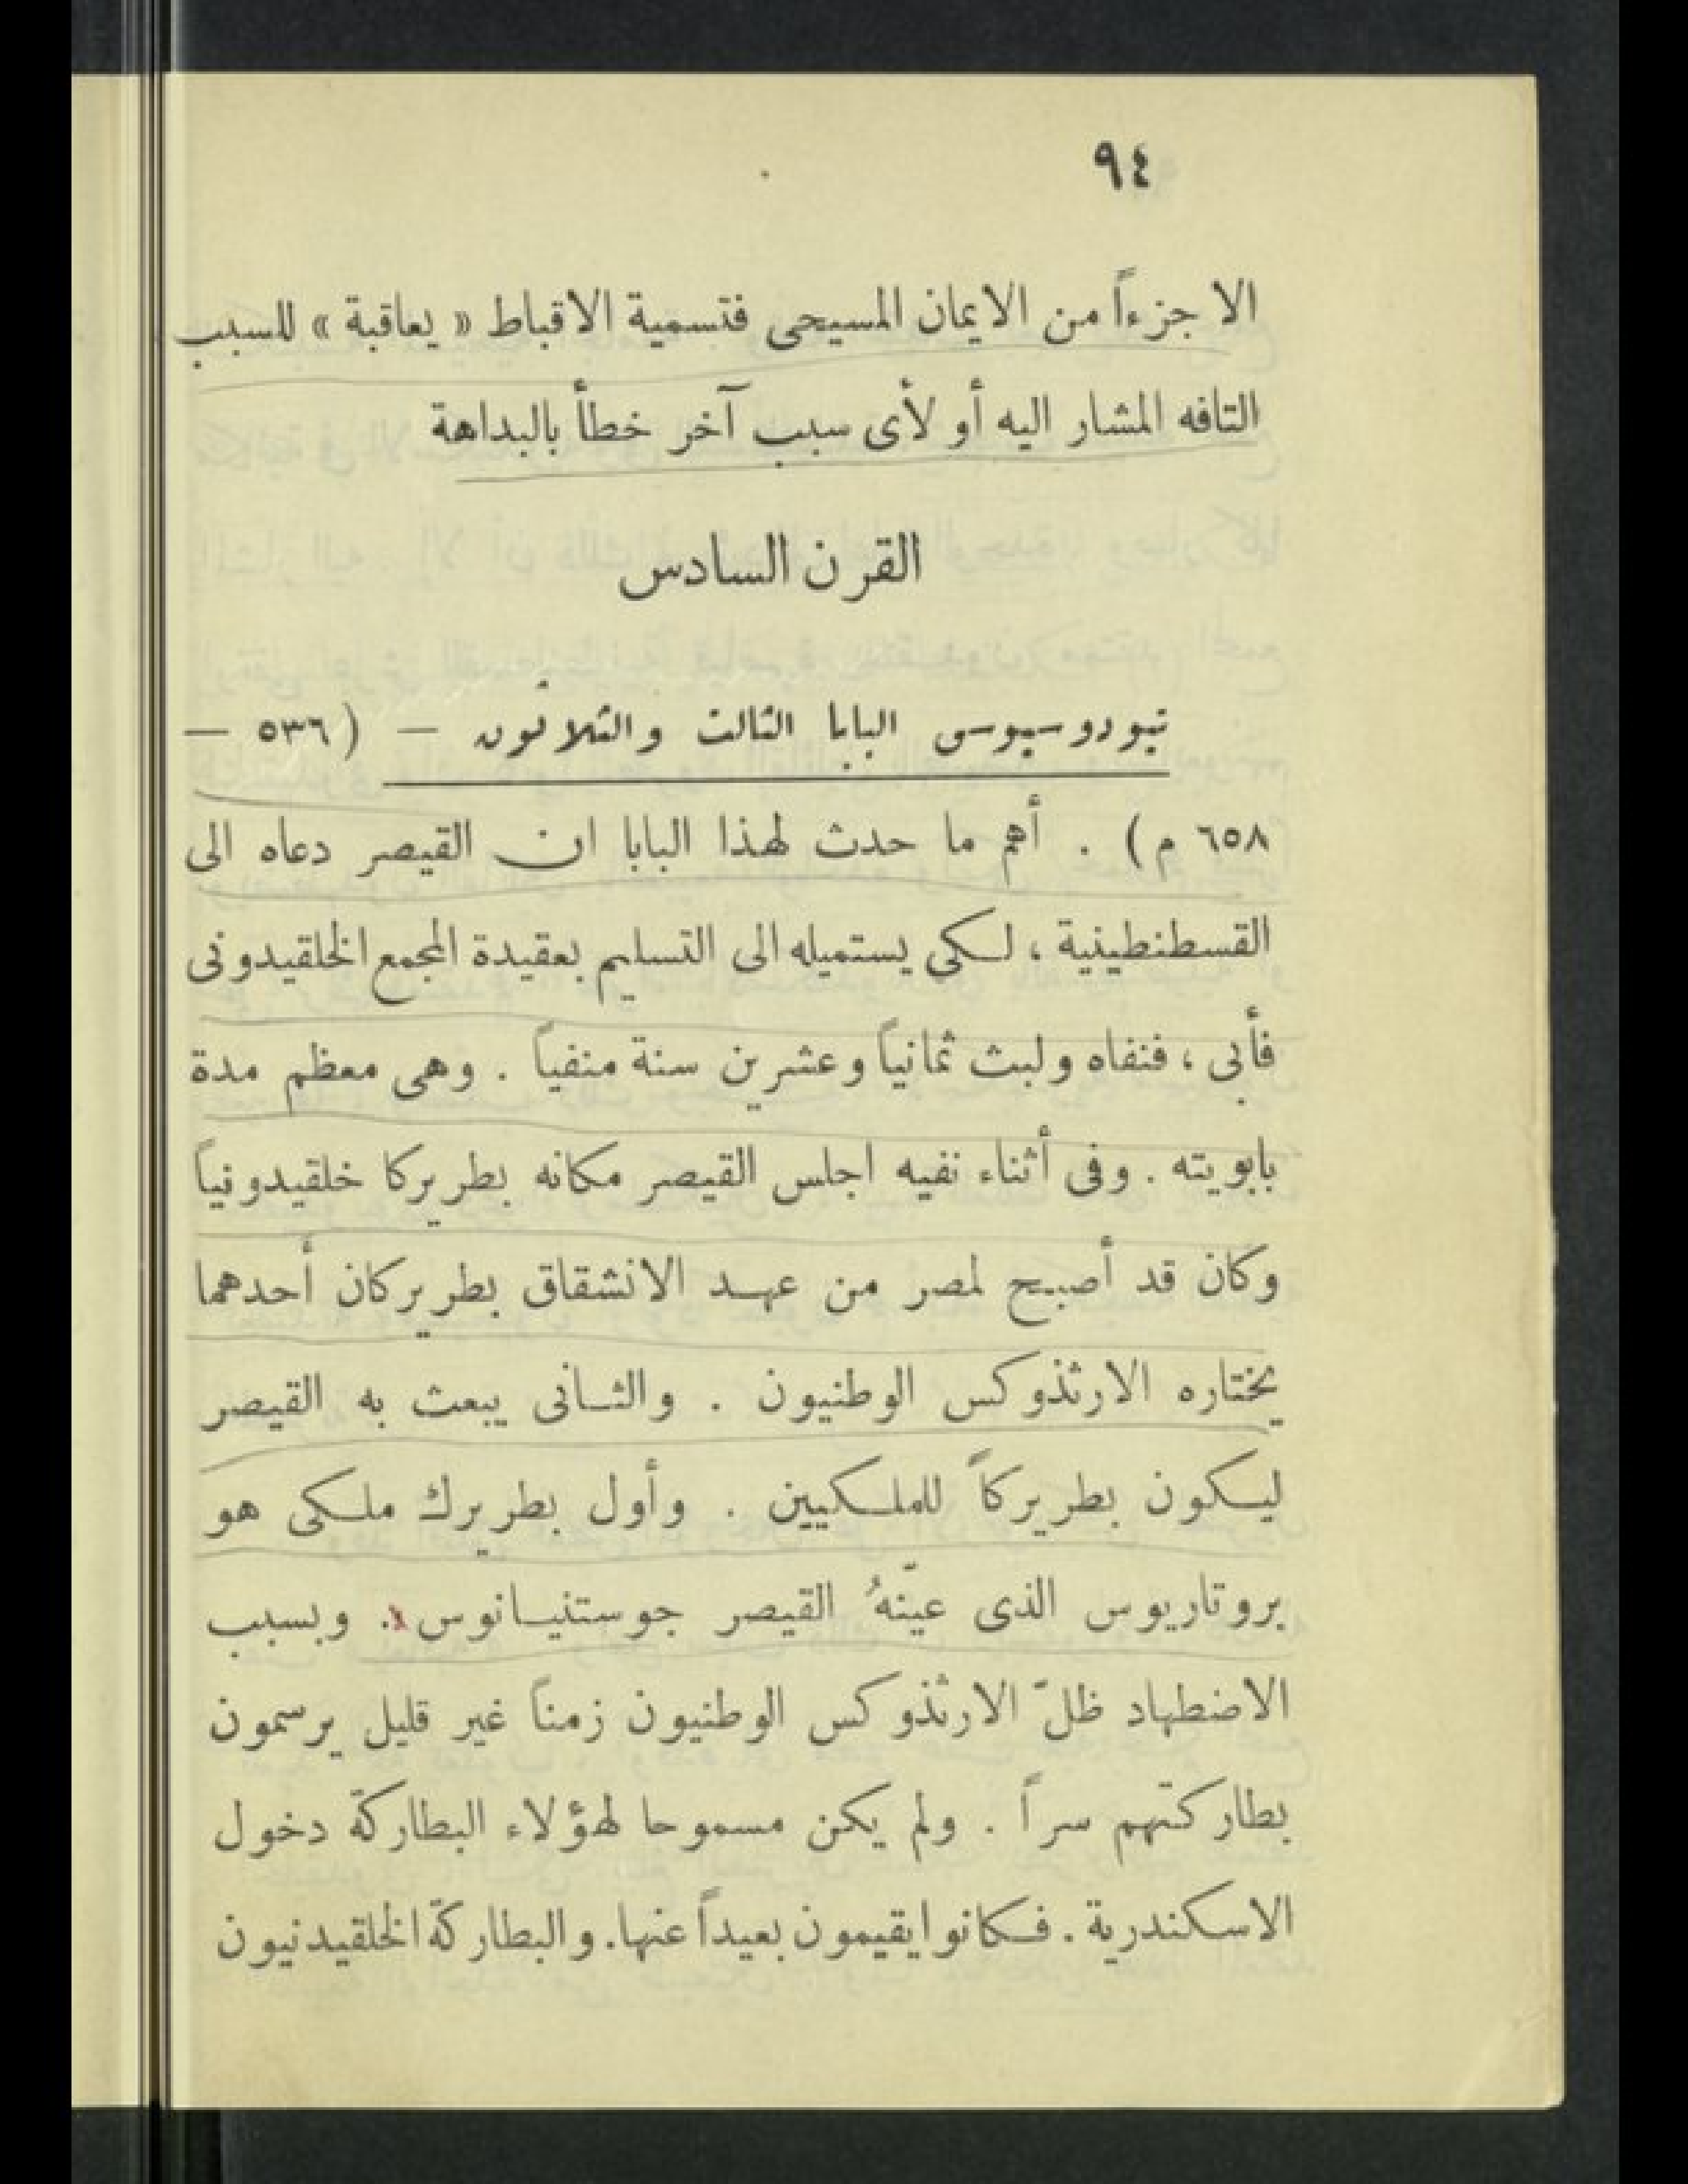 ٩٤
الا جزءاً من الايمان المسيحى فتسمية الاقباط « يعاقبة » للسبب
التافه المشار اليه أو لأى سبب آخر خطأ بالبداهة
القرن السادس
تيودوسيوس البابا الثالث والثلاثون — (٥٣٦ —
٦٥٨ م) . أهم ما حدث لهذا البابا ان القيصر دعاه الى
القسطنطينية ، لكى يستميله الى التسليم بعقيدة المجمع الخلقيدونى
فأبى ، فنفاه ولبث ثمانياً وعشرين سنة منفياً . وهى معظم مدة
بابويته . وفى أثناء نفيه اجلس القيصر مكانه بطريركا خلقيدونياً
وكان قد أصبح لمصر من عهد الانشقاق بطريركان أحدهما
يختاره الارثذوكس الوطنيون . والثانى يبعث به القيصر
ليكون بطريركاً للملكيين . وأول بطريرك ملكى هو
بروتاريوس الذى عيّنهُ القيصر جوستنيانوس . وبسبب
الاضطهاد ظلّ الارثذوكس الوطنيون زمناً غير قليل يرسمون
بطاركتهم سراً . ولم يكن مسموحا لهؤلاء البطاركة دخول
الاسكندرية . فكانوا يقيمون بعيداً عنها. والبطاركة الخلقيدنيون